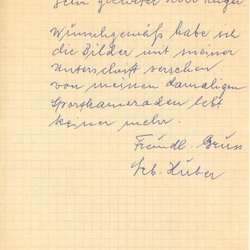 Sehr geehrter Herr
Wunschgemäß habe ich
die Bilder mit meiner
Unterschrift versehen
von meinen damaligen
Sportkameraden lebt
keiner mehr.
Freundl. Gruss
Seb. Huber